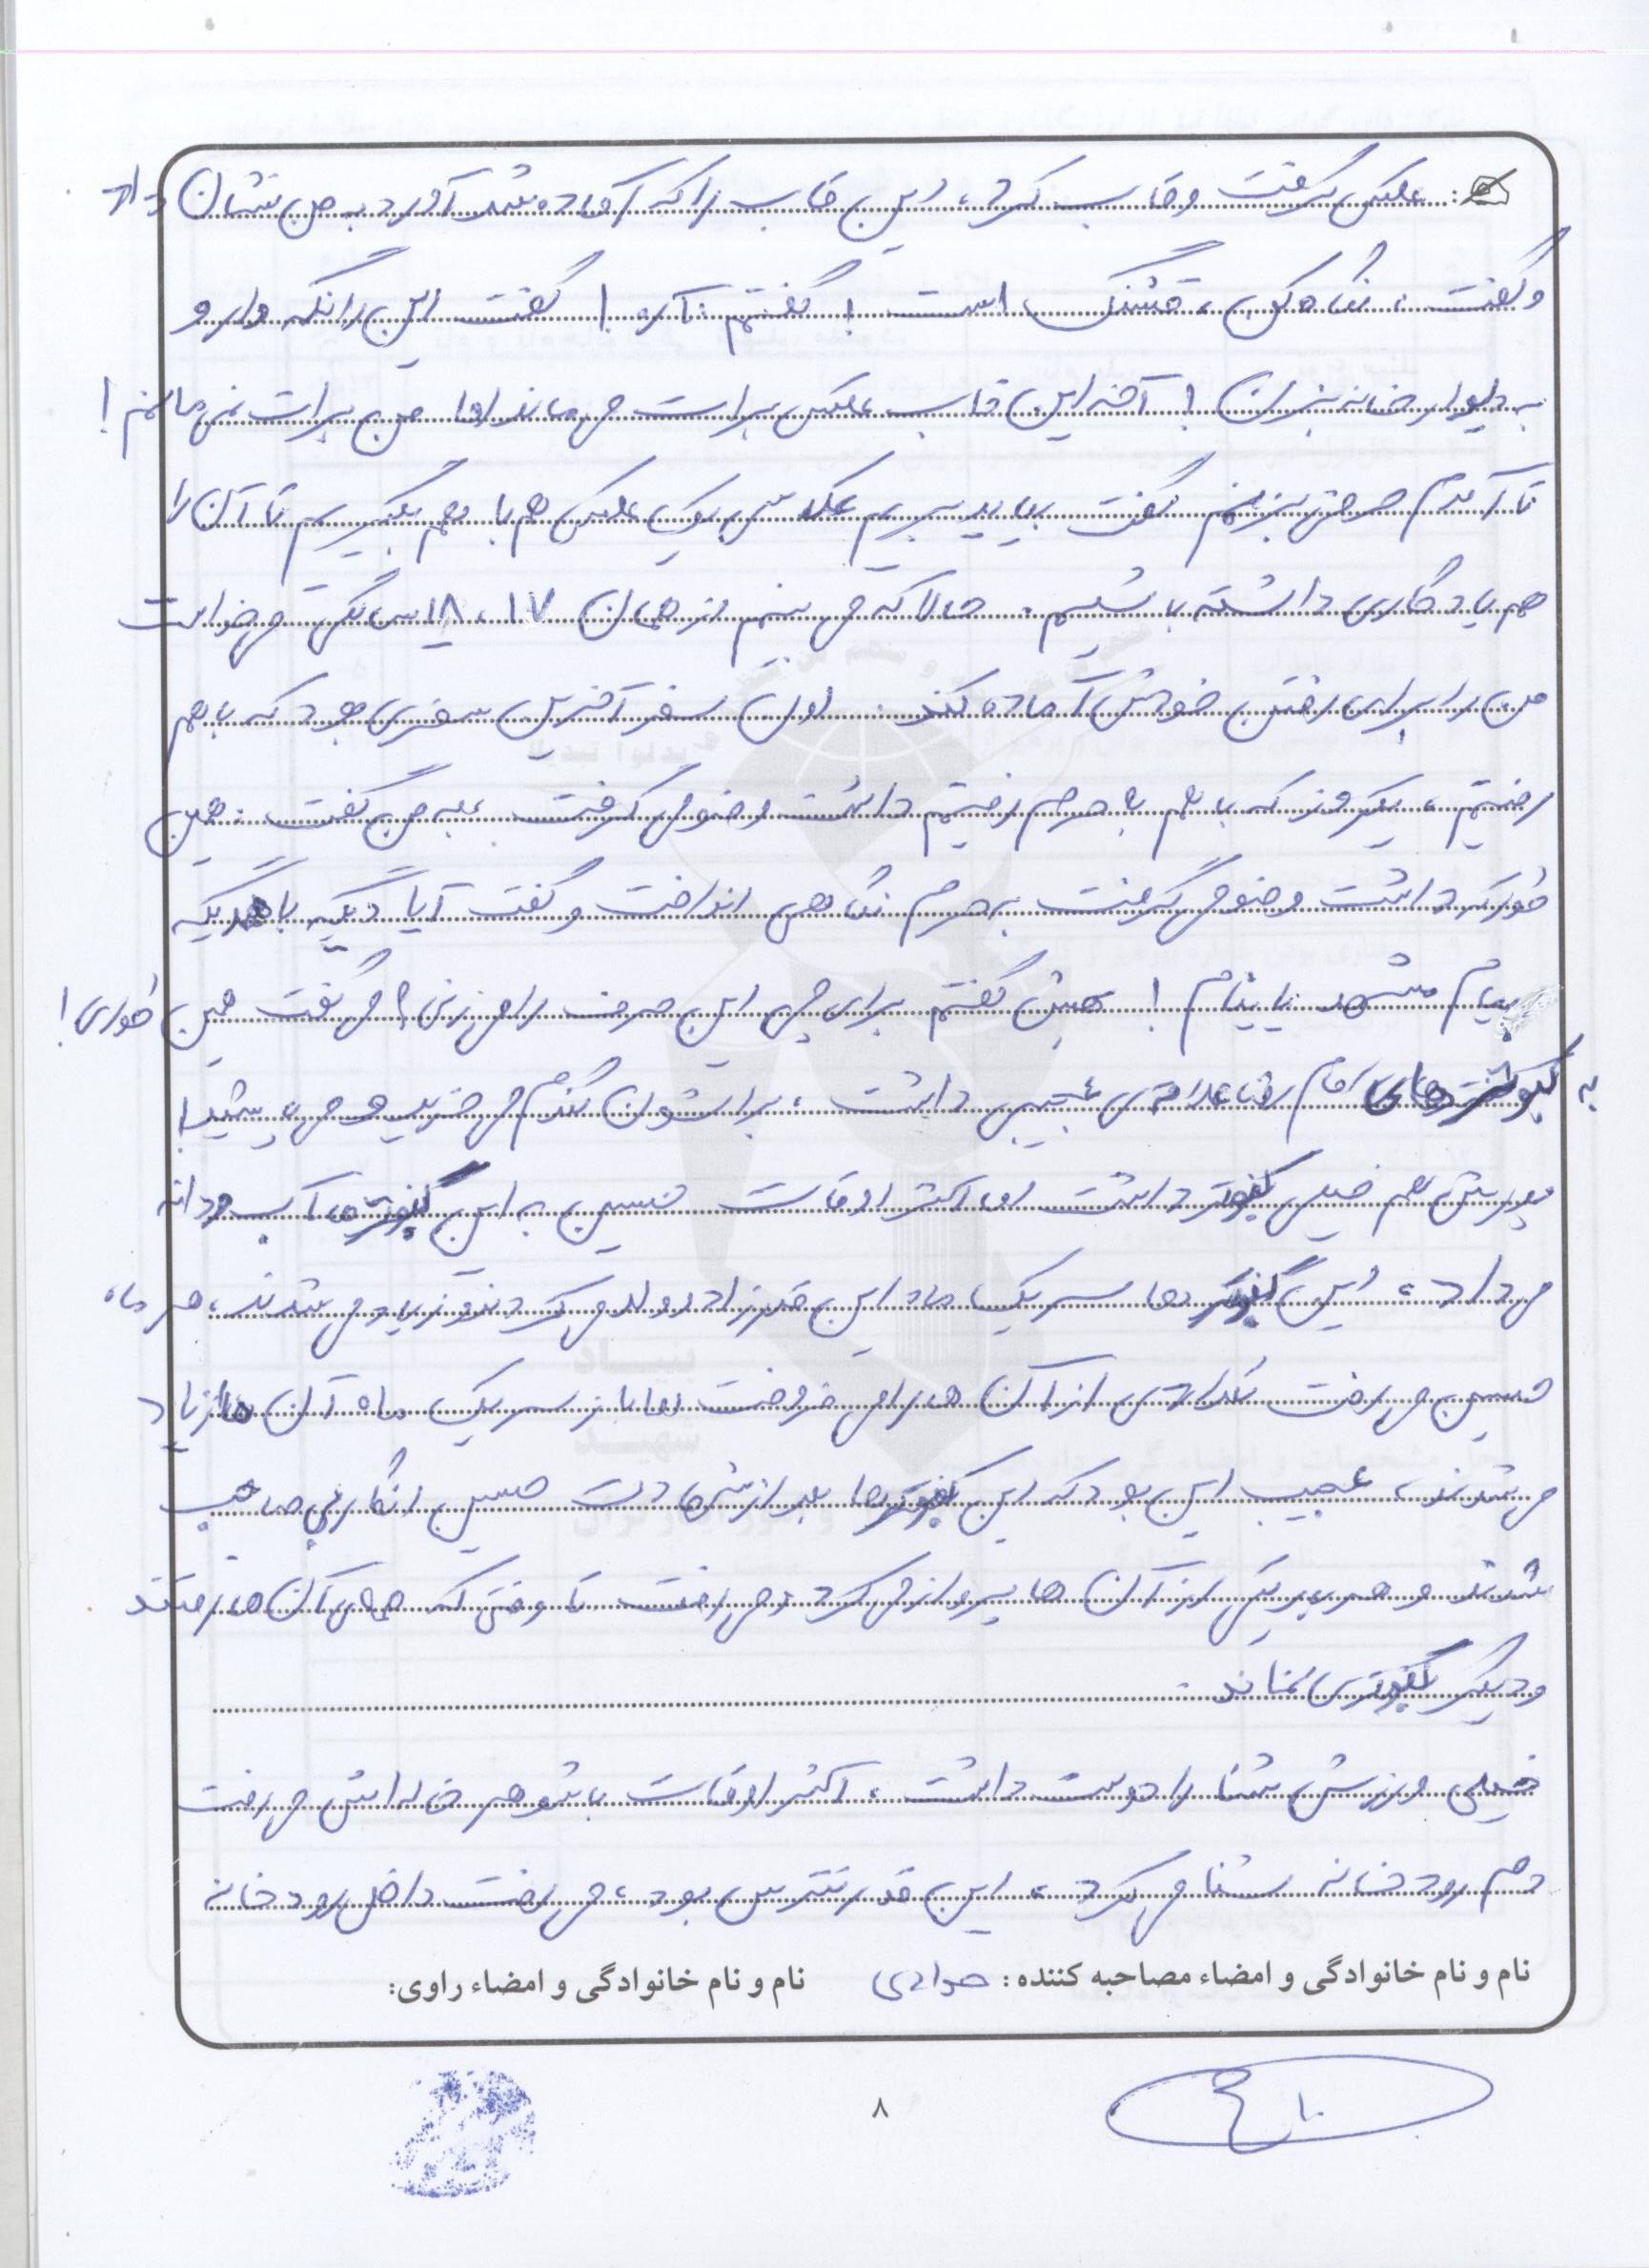 عکس گرفت و قاب کرد، این قاب را که آماده شد آورد به من نشان داد
و گفت: نگاه کن، قشنگ است! گفتم: آره! گفت این را نگه دار و
به دیوار خانه بزن! آخه این قاب عکس برات می‌ماند اما من برات نمی‌مانم!
تا آمدم حرفی بزنم گفت بیایید برویم عکاسی یک عکس هم با هم بگیریم تا آن را
هم یادگاری داشته باشیم. حالا که می‌بینم از همان ۱۷، ۱۸ سالگی می‌خواست
من را برای رفتن خودش آماده کند. اون سفر آخرین سفری بود که با هم
رفتیم، یکروز که با هم به حرم رفتیم داشت وضو می‌گرفت به من گفت: همین
طور که داشت وضو می‌گرفت به حرم نگاهی انداخت و گفت آیا دیگه بار دیگه
بیام مشهد یا نیام! بهش گفتم برای چی این حرف را می‌زنی؟ می‌گفت همین طوری!
به کبوترهای امام رضا علاقه‌ی عجیبی داشت، براشون گندم می‌خرید و می‌پاشید!
پدرش هم خیلی کفتر داشت اما اکثر اوقات حسین به این کفترها آب و دانه
می‌داد، این کفترها سر یک ماه این قدر زاد و ولد می‌کردند و زیاد می‌شدند، هر ماه
حسین می‌رفت تعدادی از آن ها را می‌فروخت اما باز سر یک ماه آن ها زیاد
می‌شدند، عجیب این بود که این کفترها بعد از شهادت حسین انگار بی صاحب
شدند و هر یکی از آن ها پرواز می‌کرد و می‌رفت تا وقتی که همه‌ی آن ها رفتند
و دیگر کفتری نماند.
خیلی ورزش شنا را دوست داشت، اکثر اوقات با شوهر خاله‌اش می‌رفت
دم رودخانه شنا می‌کرد، این قدر نترس بود، می‌رفت داخل رودخانه
نام و نام خانوادگی و امضاء مصاحبه کننده: نام و نام خانوادگی و امضاء راوی:
۸